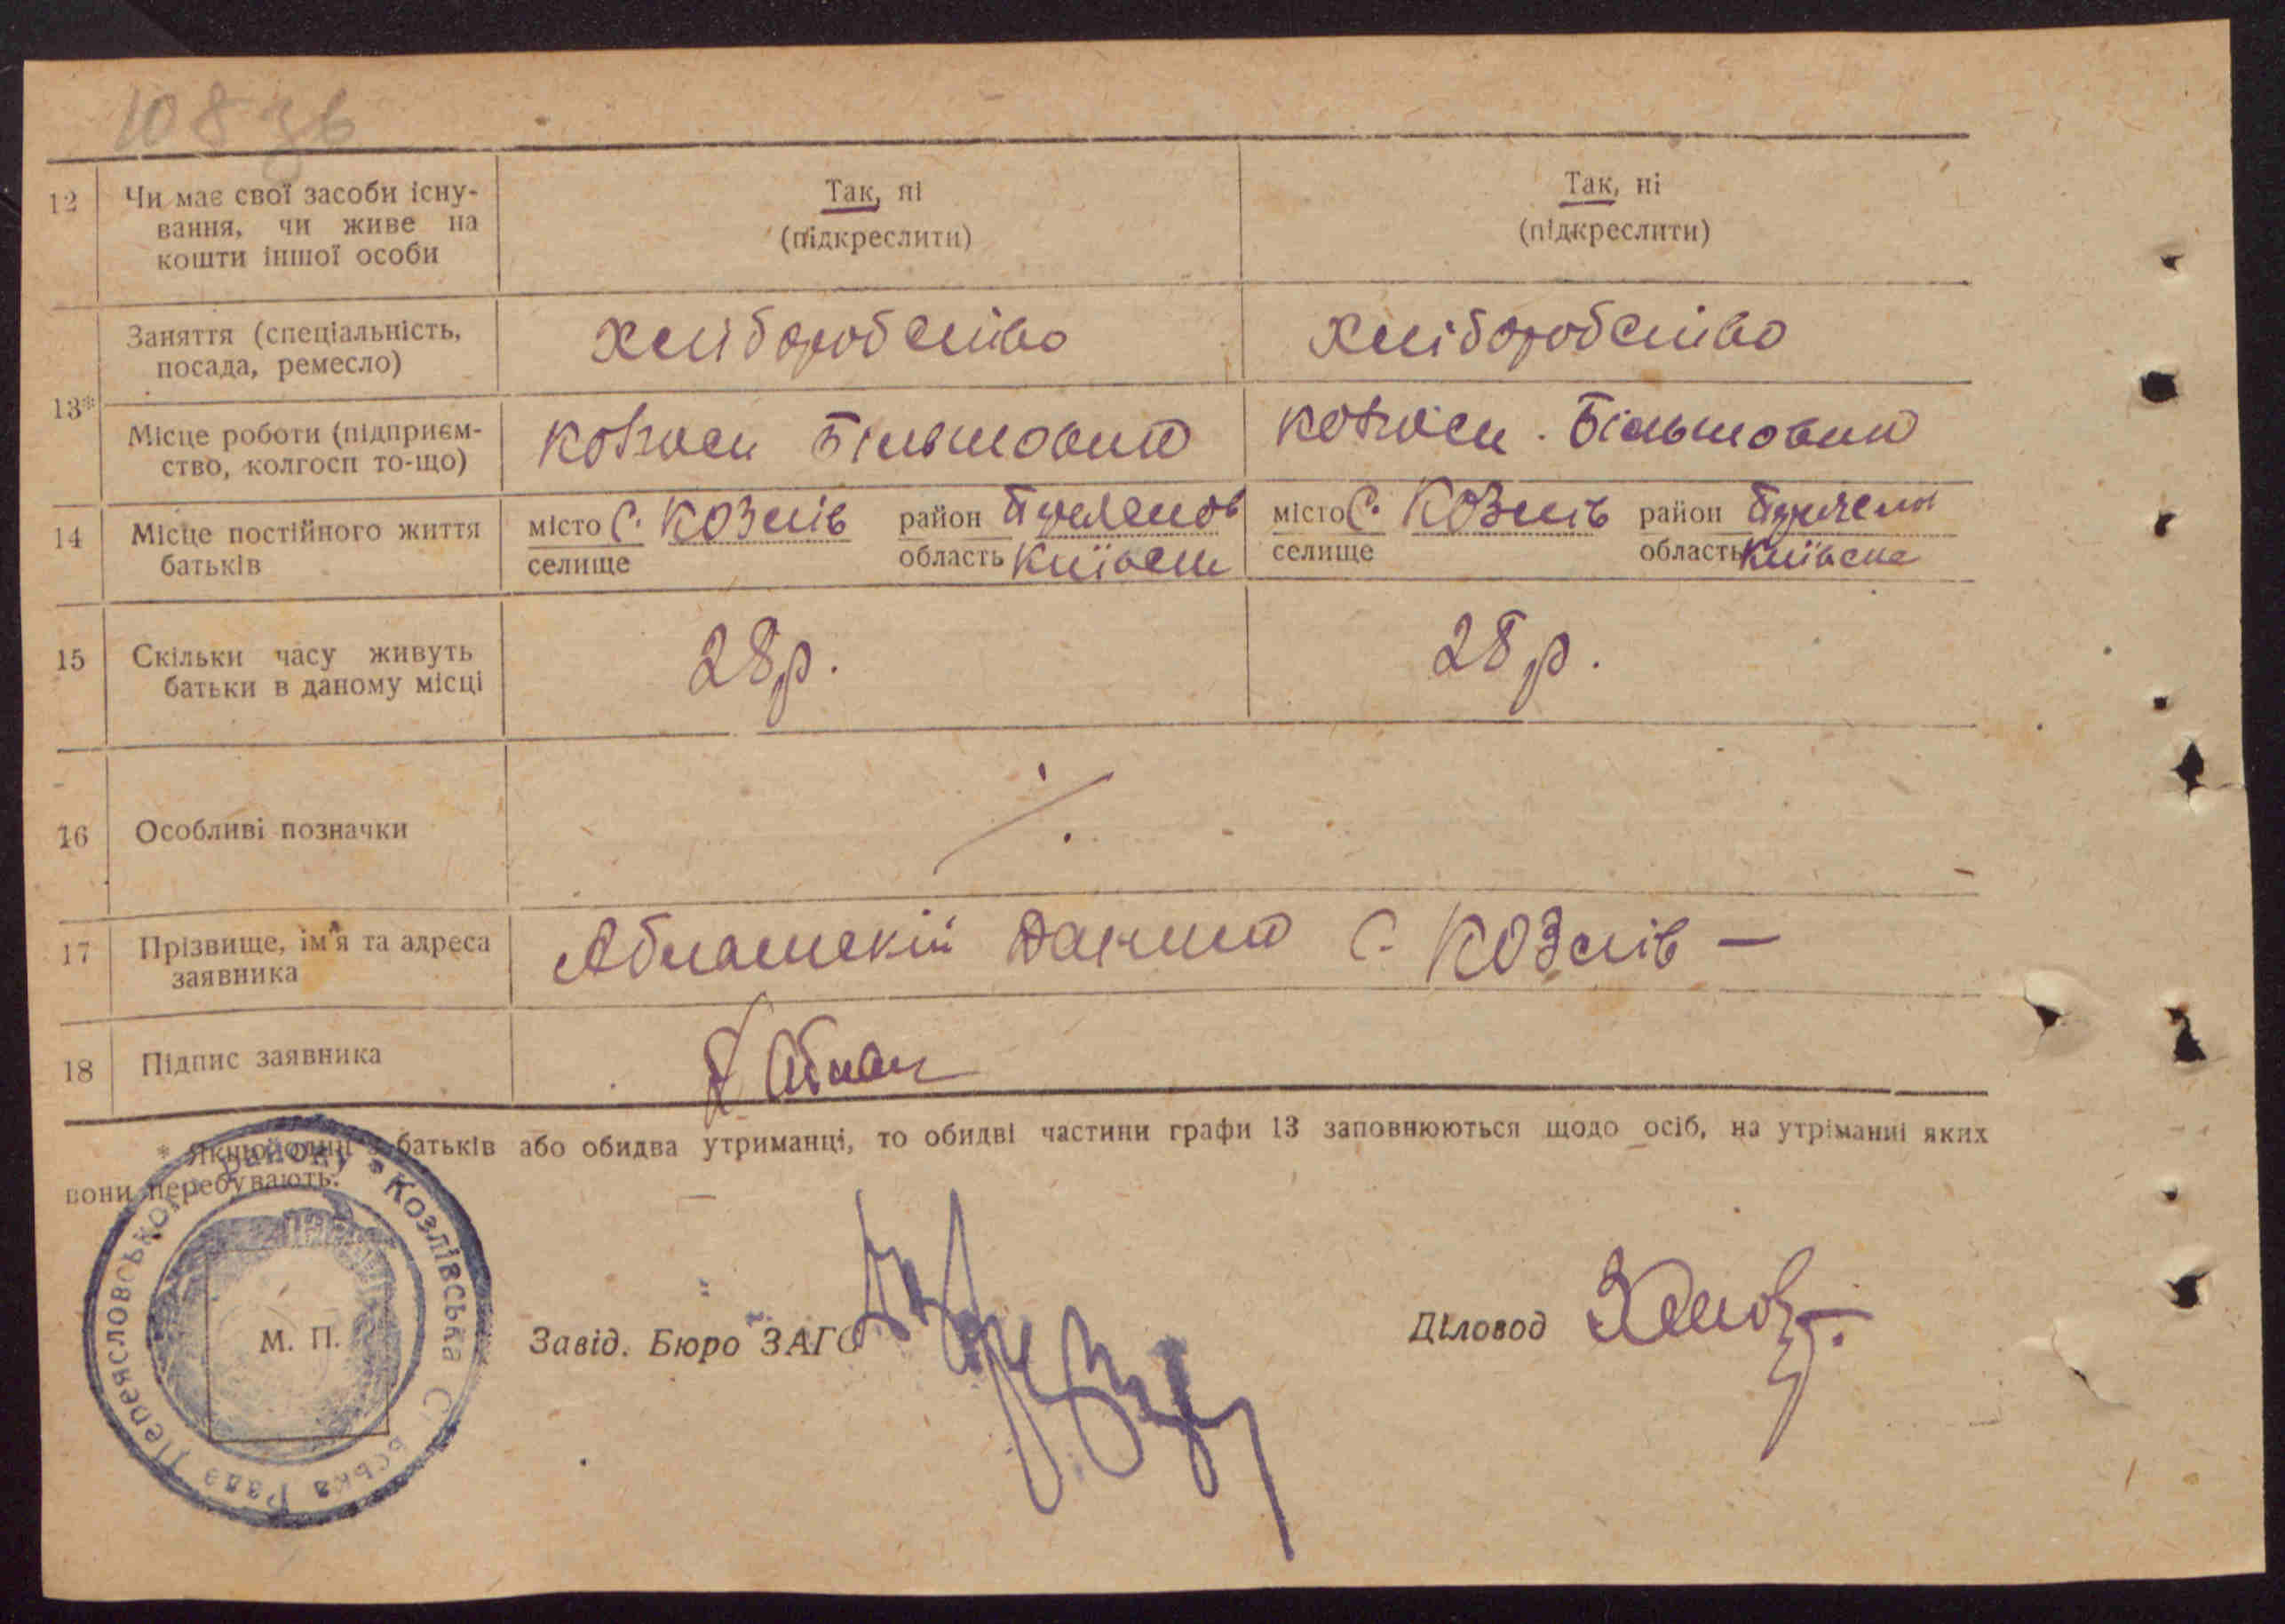 108 зв
12 Чи має свої засоби існу- Так, ні Так, ні
вання, чи живе на (підкреслити) (підкреслити)
кошти іншої особи
Заняття (спеціальність, хліборобство хліборобство
посада, ремесло)
13*
Місце роботи (підприєм- Більшовик Більшовик
ство, колгосп то-що)
14 Місце постійного життя місто с. Козлів район місто с. Козлів район
батьків селище область Київськ селище область Київська
15 Скільки часу живуть 28 р. 28 р.
батьки в даному місці
16 Особливі позначки
17 Прізвище, ім'я та адреса Данило с. Козлів —
заявника
18 Підпис заявника
* Якщо один з батьків або обидва утриманці, то обидві частини графи 13 заповнюються щодо осіб, на утриманні яких
вони перебувають.
Переясловського району * Козлівська Сільська Рада
М. П.
Завід. Бюро ЗАГС Діловод